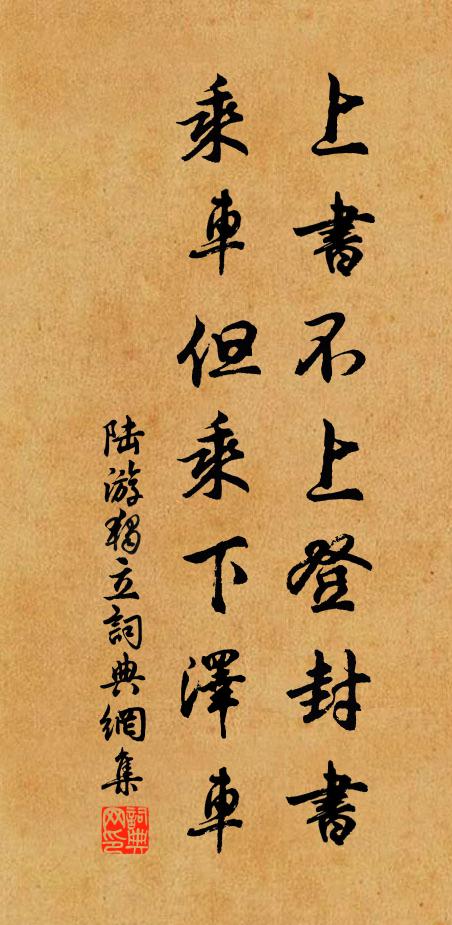 上書不上登封書
乘車但乘下澤車
陆游獨立詞典網集
詞典网印